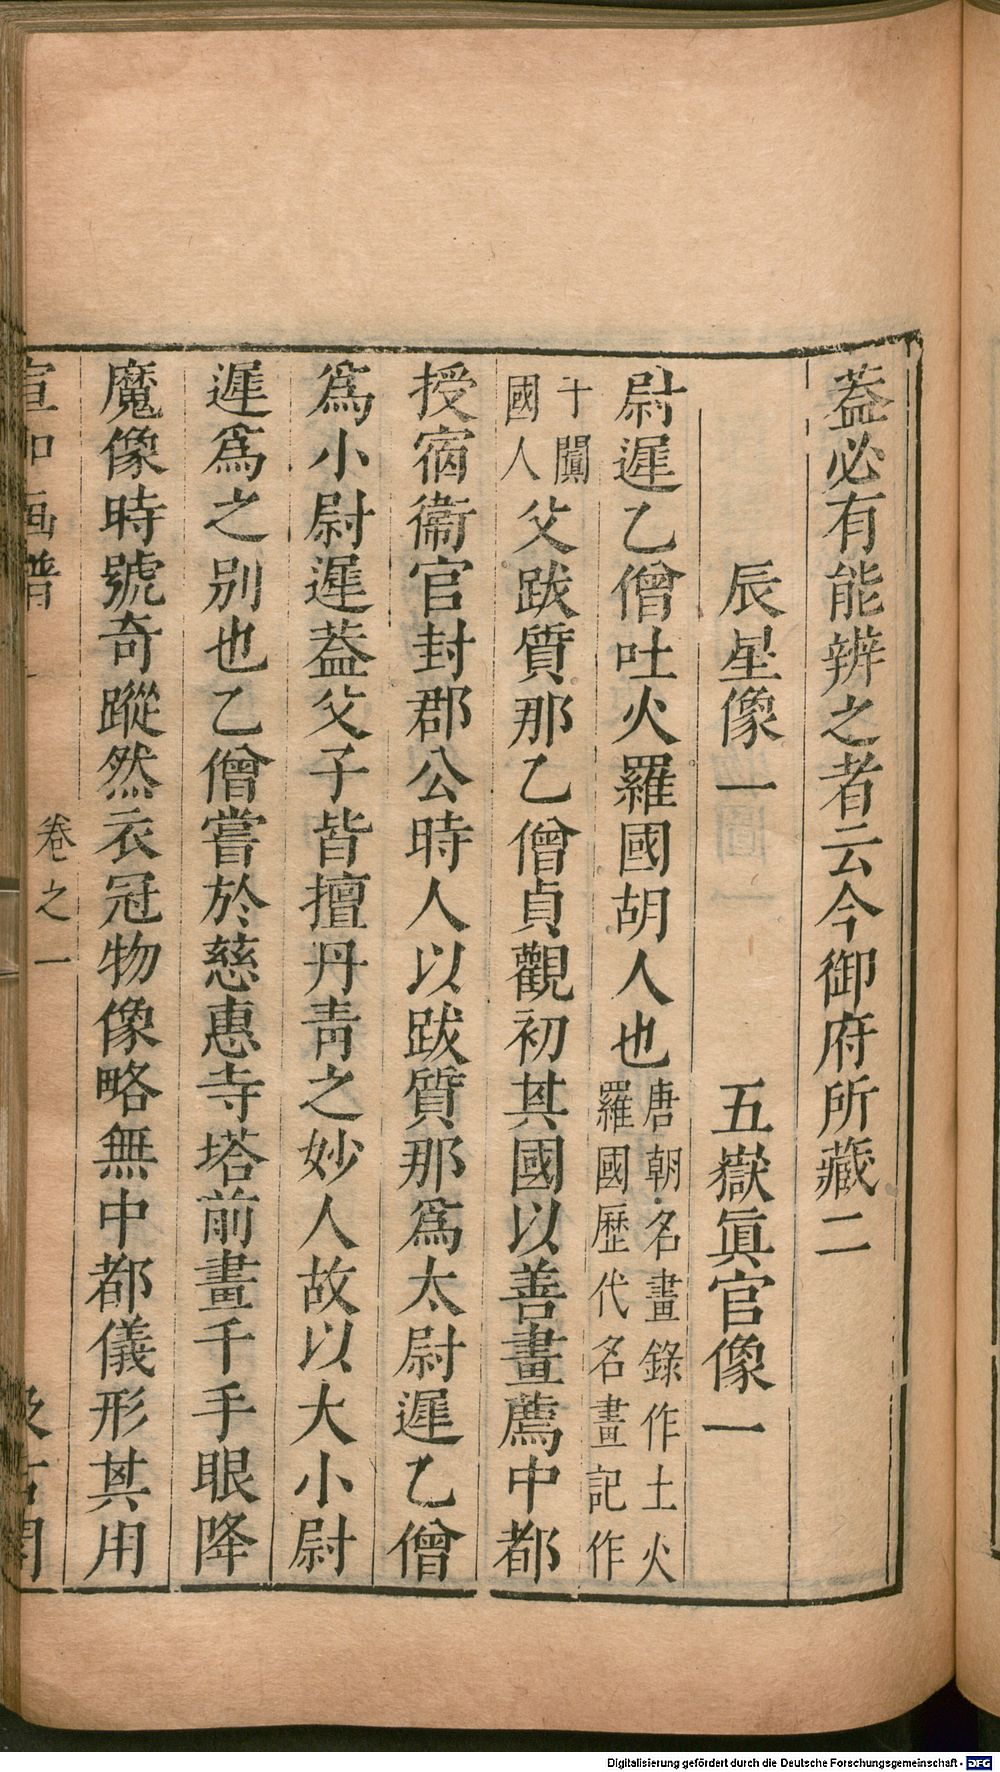 葢必有能辨之者云今御府所藏二
辰星像一　五嶽眞官像一
尉遲乙僧吐火羅國胡人也唐朝名畫錄作土火
羅國歷代名畫記作
于闐
國人父跋質那乙僧貞觀初其國以善畫薦中都
授宿衞官封郡公時人以跋質那爲太尉遲乙僧
爲小尉遲葢父子皆擅丹青之妙人故以大小尉
遲爲之别也乙僧嘗於慈惠寺塔前畫千手眼降
魔像時號奇蹤然衣冠物像略無中都儀形其用
宣和画譜
卷之一
汲古閣
Digitalisierung gefördert durch die Deutsche Forschungsgemeinschaft - DFG